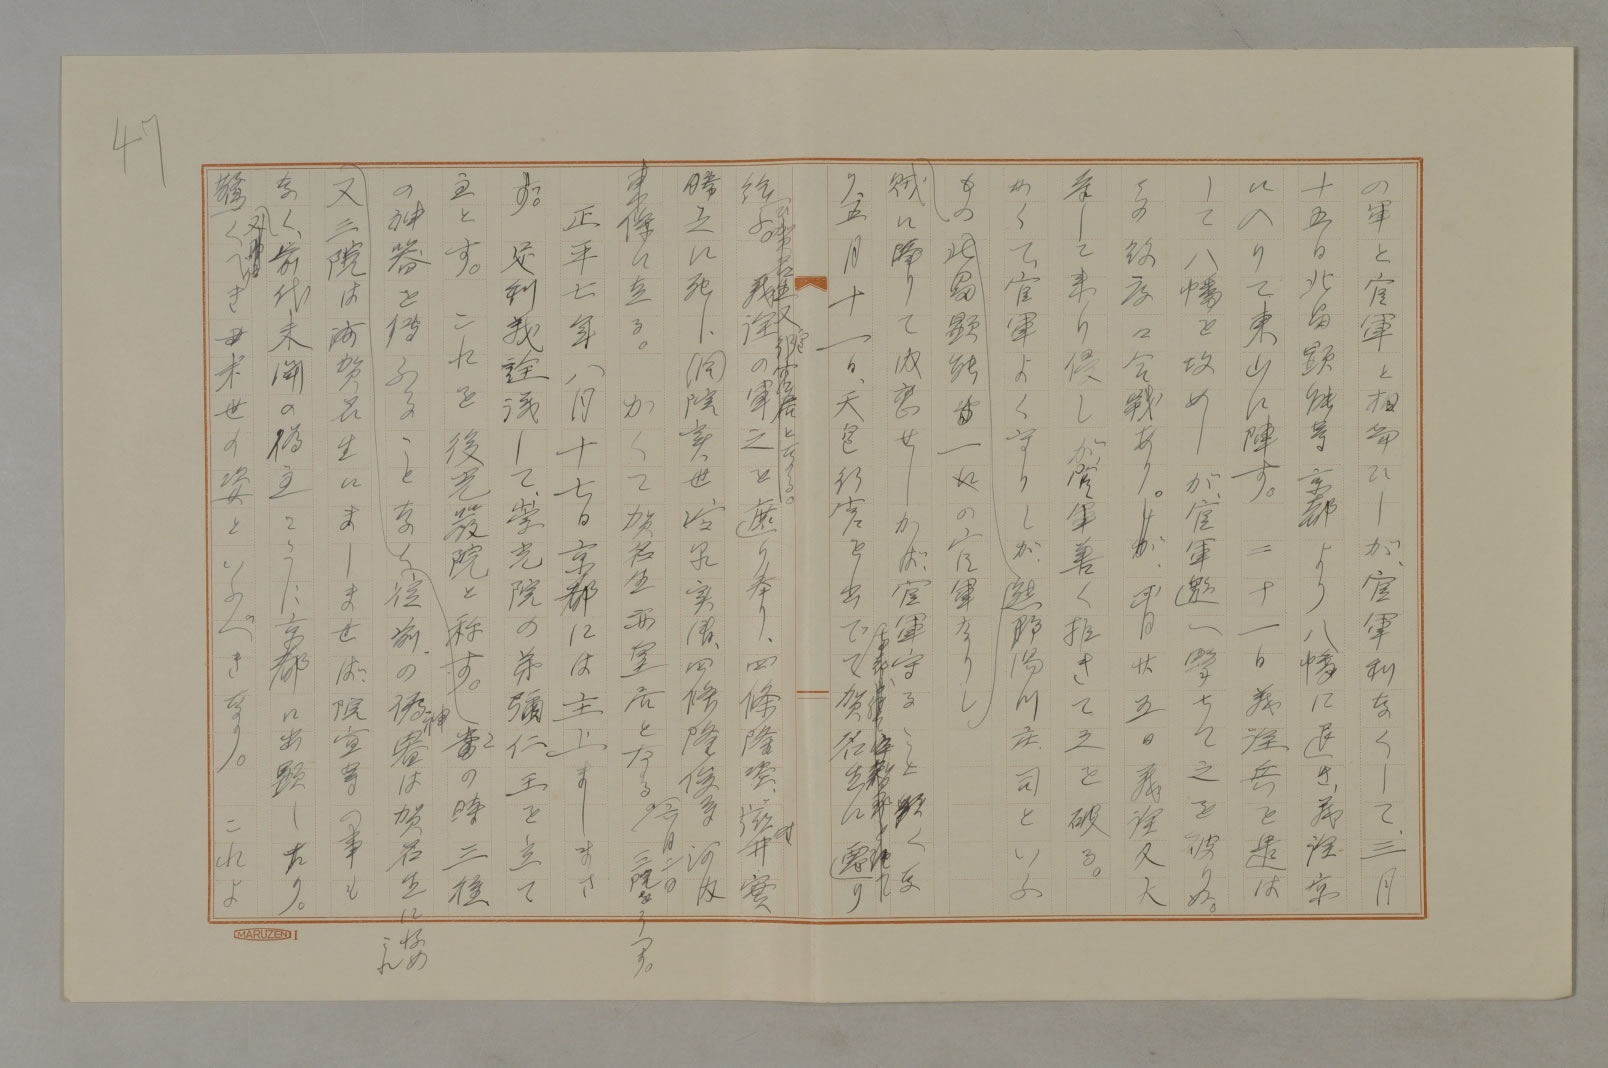 47
の軍と官軍と相會ひしが、官軍利なくして、三月
十五日北畠顕能等京都より八幡に退き、義詮京
に入りて東山に陣す。二十一日義詮兵を遣は
して八幡を攻めしが、官軍邀へ撃ちて之を破りぬ。
その後度々合戦あり。四月廿五日義詮又大
挙して来り侵ししが、官軍善く拒ぎて之を破る。
かくて、官軍よく守りしが、熊野湯川庄司といふ
もの北畠顕能当一族の官軍なりし
賊に降りて内應せしかば、官軍守ること難くな
り、五月十一日、天皇行宮を出でて賀名生に還り
給ふ。義詮の軍之を遮り奉り、四條隆資、滋井實
勝之に死し、洞院実世、四條隆俊等河内
東條に至る。かくて賀名生再皇居となる。(六月二日三院をうつす。)
正平七年八月十七日京都には主上ましまさ
ず。足利義詮議して、崇光院の弟彌仁王を立て
主とす。これを後光厳院と称す。当の時三種
の神器を備ふることなく、従前の偽神器は賀名生に収め
又三院は河賀名生にましませば、院宣等の事も
なく、前代未聞の偽主こゝに京都に出顕したり。
驚くべき世末世の姿といふべきなり。これよ
MARUZEN I